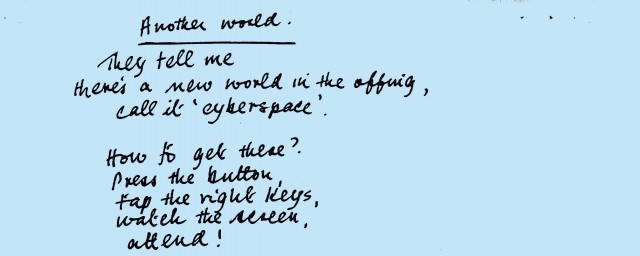 Another world.
They tell me
there's a new world in the offing,
call it 'cyberspace'.
How to get there?
Press the button,
tap the right keys,
watch the screen,
attend!